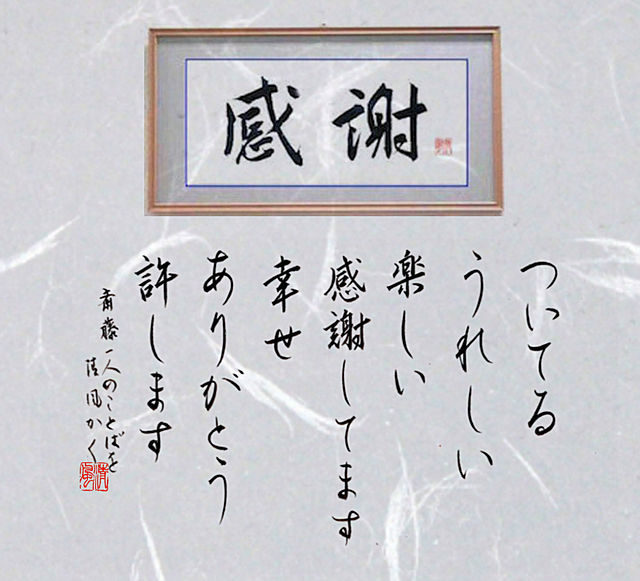 感謝
ついてる
うれしい
楽しい
感謝してます
幸せ
ありがとう
許します
斎藤一人のことばを
清風かく